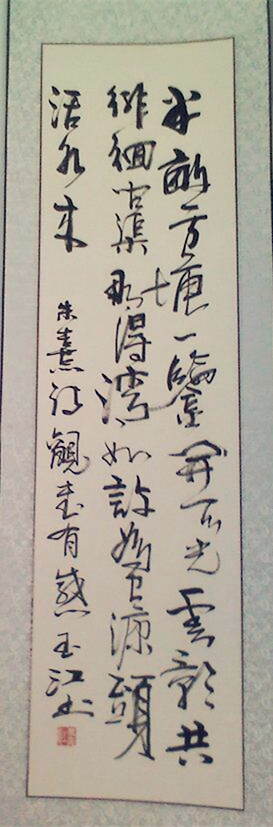 半畝方塘一鑒開天光雲影共
徘徊問渠那得清如許為有源頭
活水來 朱熹詩觀書有感 玉江書